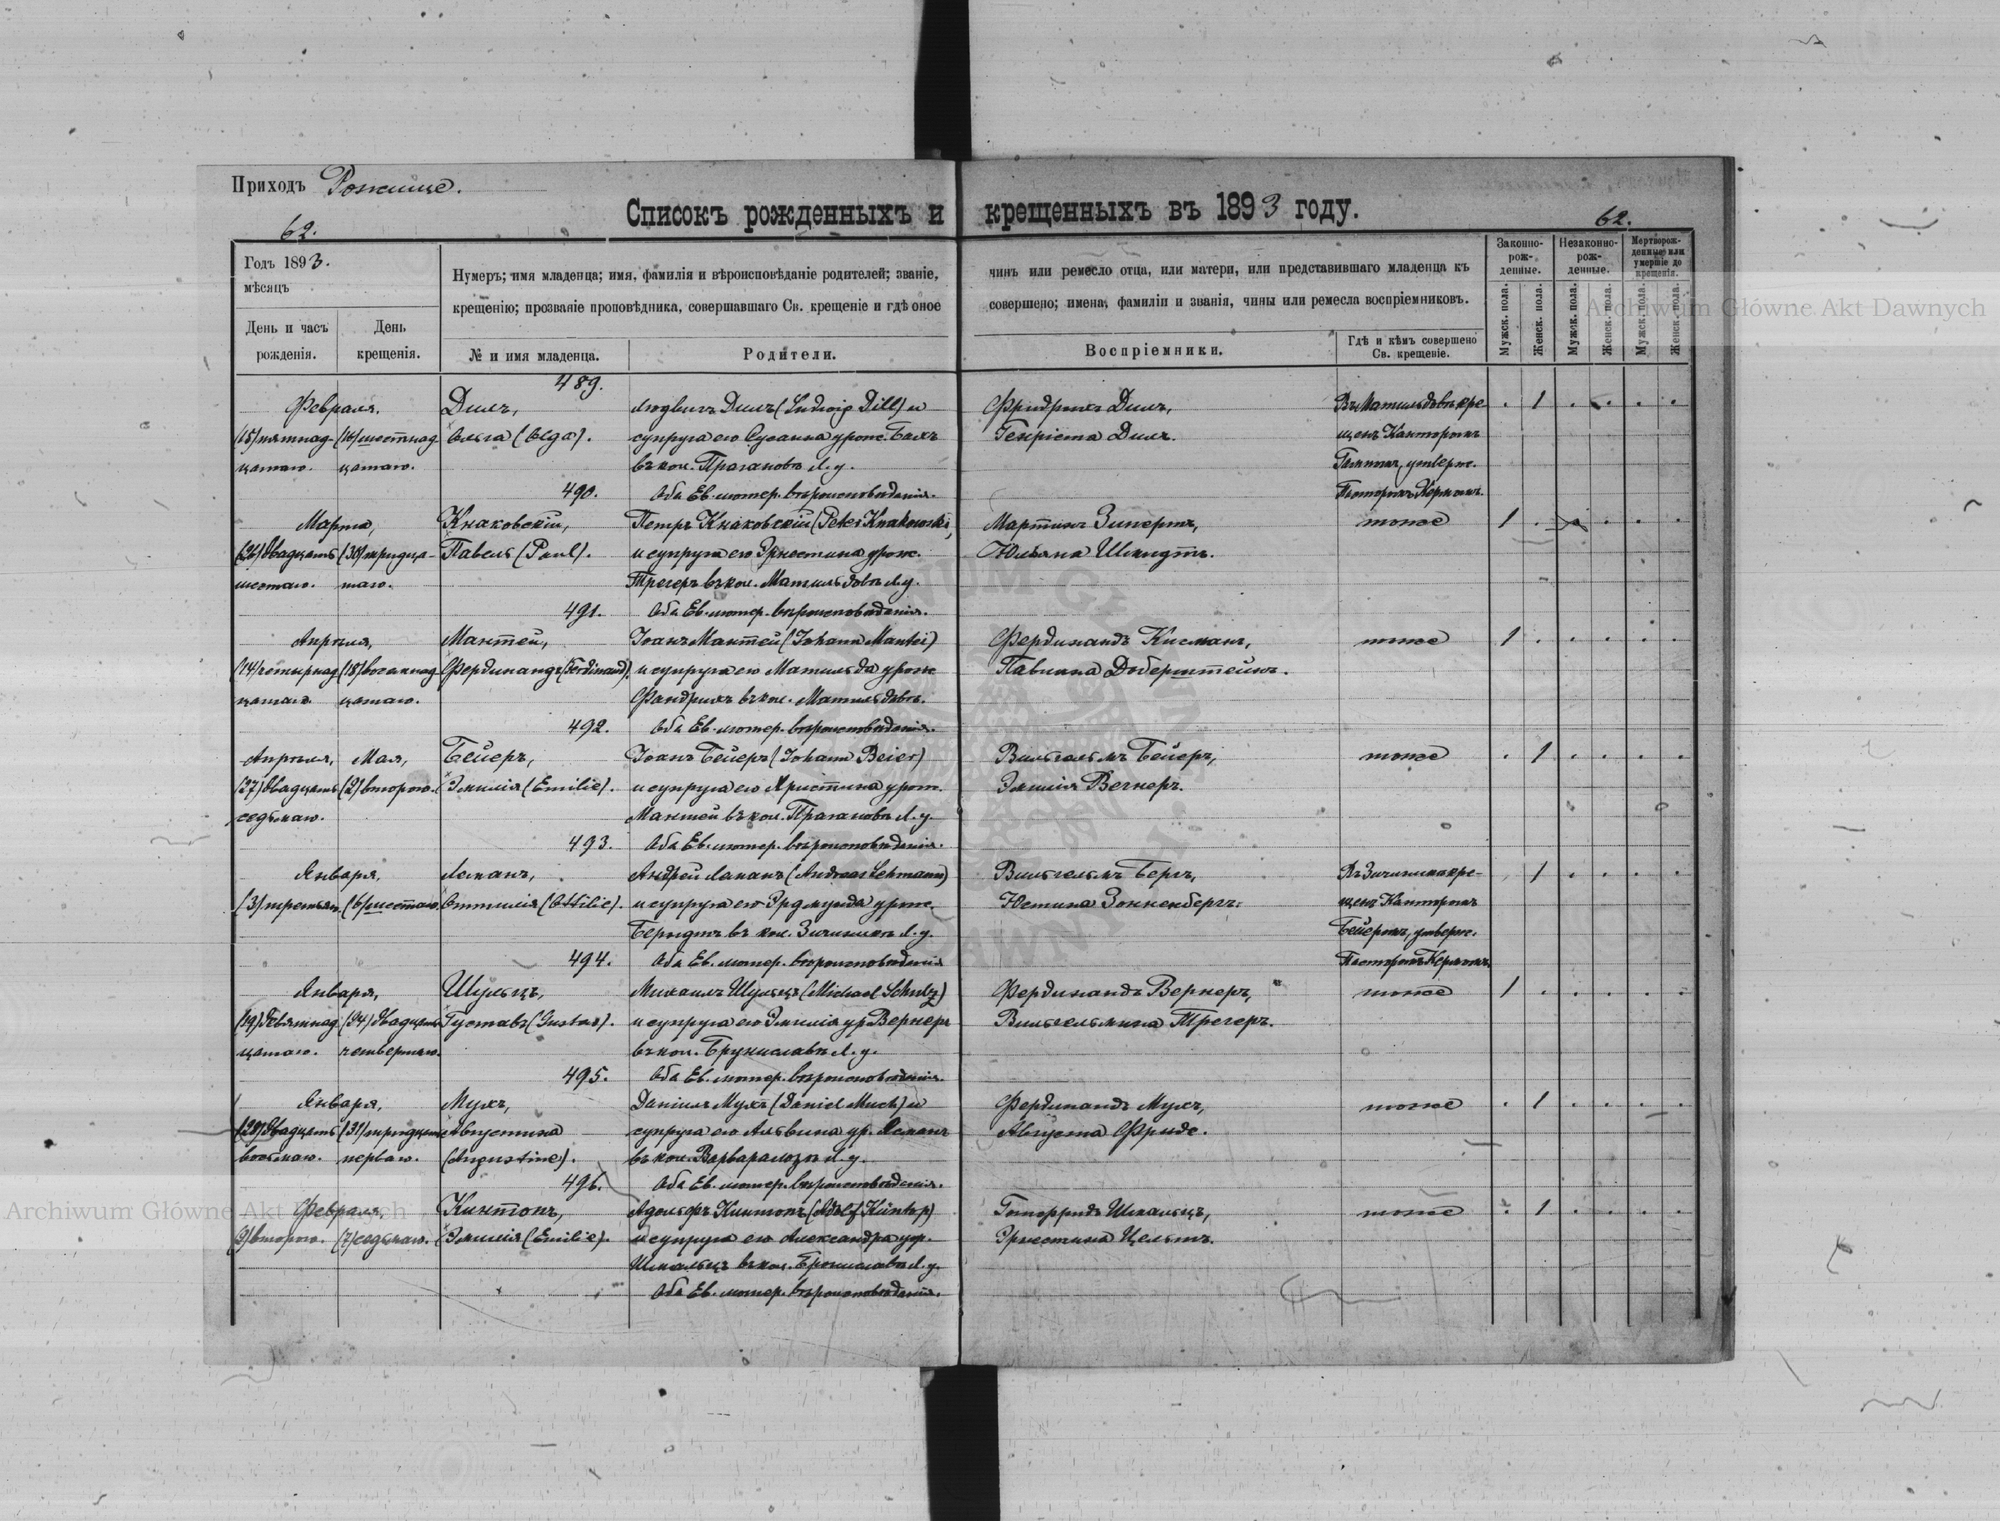 Приходъ Рожище.
Списокъ рожденныхъ и крещенныхъ въ 1893 году.
62.
62.
Годъ 1893.
мѣсяцъ
День и часъ рожденія.
День крещенія.
Нумеръ; имя младенца; имя, фамилія и вѣроисповѣданіе родителей; званіе, чинъ или ремесло отца, или матери, или представившаго младенца къ
крещенію; прозваніе проповѣдника, совершавшаго Св. крещеніе и гдѣ оное совершено; имена, фамиліи и званія, чины или ремесла воспріемниковъ.
№ и имя младенца.
Родители.
Воспріемники.
Гдѣ и кѣмъ совершено Св. крещеніе.
Законно-рож-денные.
Незаконно-рож-денные.
Мертворож-денные или умершіе до крещенія.
Мужск. пола.
Женск. пола.
Мужск. пола.
Женск. пола.
Мужск. пола.
Женск. пола.
489.
Февраля, Дилъ, Людвигъ Дилъ (Ludwig Dill) и Фридрихъ Дилъ, Въ Матильдовѣ кре 1
(15) пятнад- (16) шестнад Ольга (Olga). супруга его Сусанна урож. Банъ Генріета Дилъ. щенъ Канторомъ
цатаго. цатаго. въ кол. Прагановъ Л. у. утверж.
490. Оба Ев. лютер. вѣроисповѣданія. Пасторомъ Керномъ.
Марта, Кнаковскій, Петръ Кнаковскій (Peter Knakowski) Мартинъ Зипертъ, тоже 1
(26) двадцать (30) тридца- Павелъ (Paul). и супруга его Эрнестина урож. Юльяна Шмидтъ.
шестаго. таго. Трегеръ въ кол. Матильдовъ Л. у.
491. Оба Ев. лютер. вѣроисповѣданія.
Апрѣля, Мантей, Іоанъ Мантей (Johann Mantei) Фердинандъ Кисманъ, тоже 1
(14) четырнад (18) восемнад Фердинандъ (Ferdinand). и супруга его Матильда урож Павлина Доберштейнъ.
цатаго. цатаго. Фандрихъ въ кол. Матильдовъ.
492. Оба Ев. лютер. вѣроисповѣданія.
Апрѣля, Мая, Бейеръ, Іоанъ Бейеръ (Johann Beier) Вильгельмъ Бейеръ, тоже 1
(27) двадцать (2) второго. Эмилія (Emilie). и супруга его Христина урож. Эмилія Вегнеръ.
седьмаго. Мантей въ кол. Прагановъ Л. у.
493. Оба Ев. лютер. вѣроисповѣданія.
Января, Леманъ, Андрей Леманъ (Andreas Lehmann) Вильгельмъ Бергъ, кре- 1
(3) третьяго (6) шестаго. Оттилія (Ottilie). и супруга его Эрдмунда урож. Юстина Зонненбергъ. щенъ Канторомъ
Берндтъ въ кол. Л. у. Бейеромъ, утверж.
494. Оба Ев. лютер. вѣроисповѣданія Пасторомъ Керномъ.
Января, Шульцъ, Михаилъ Шульцъ (Michael Schulz) Фердинандъ Вернеръ, тоже 1
(19) девятнад (24) двадцать Густавъ (Gustav). и супруга его Эмилія ур Вернеръ Вильгельмина Трегеръ.
цатаго. четвертаго. въ кол. Л. у.
495. Оба Ев. лютер. вѣроисповѣданія.
Января, Мухъ, Даніилъ Мухъ (Daniel Much) и Фердинандъ Мухъ, тоже 1
(28) двадцать (31) тридцать Августина супруга его Альвина ур. Леманъ Августа Фриде.
восьмаго. перваго. (Augustine). въ кол. Л. у.
496. Оба Ев. лютер. вѣроисповѣданія.
Февраля, Кинтопъ, Адольфъ Кинтопъ (Adolf Kintop) Готфридъ Шмальцъ, тоже 1
(2) второго. (7) седьмаго. Эмилія (Emilie). и супруга его Александра ур. Эрнестина Цельтъ.
Шмальцъ въ кол. Брониславовъ Л. у.
Оба Ев. лютер. вѣроисповѣданія.
Archiwum Główne Akt Dawnych
Archiwum Główne Akt Dawnych